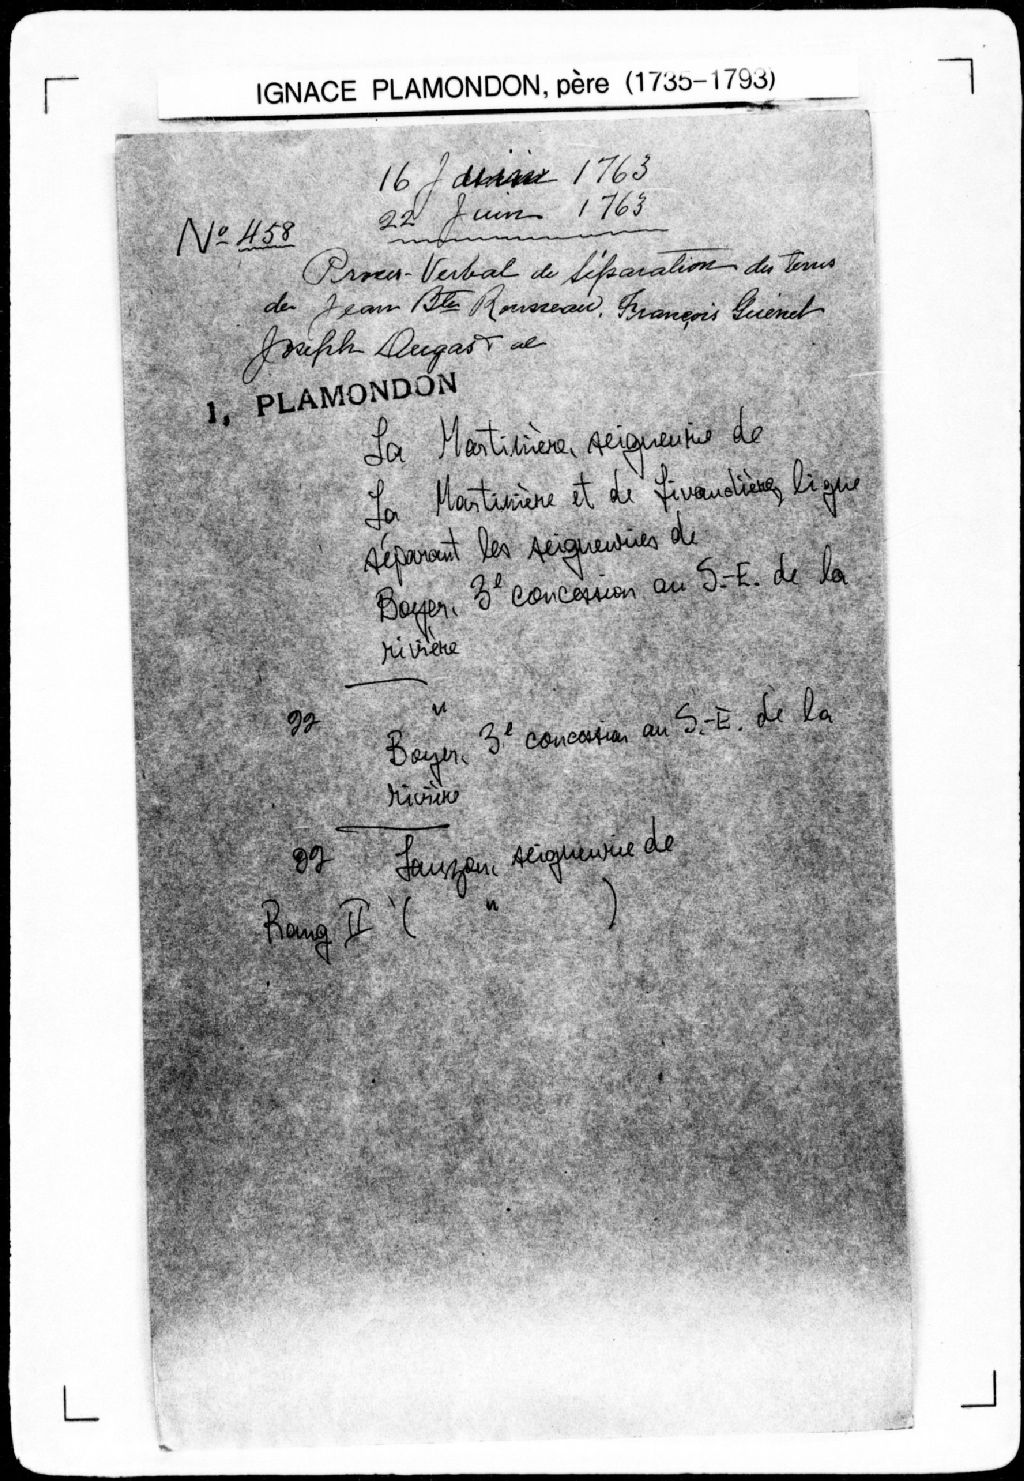 IGNACE PLAMONDON, père (1735-1793)
16 Juin 1763
22 Juin 1763
No 458
Proces-Verbal de Séparation des terres
de Jean Bte Rousseau, François Guénet
Joseph Dugast al
I, PLAMONDON
La Martinière, seigneurie de
La Martinière et de Livaudière, ligne
séparant les seigneuries de
Boyer, 3e concession au S.-E. de la
rivière
"
22 Boyer, 3e concession au S.-E. de la
rivière
22 Lauzon, seigneurie de
Rang II ( " )